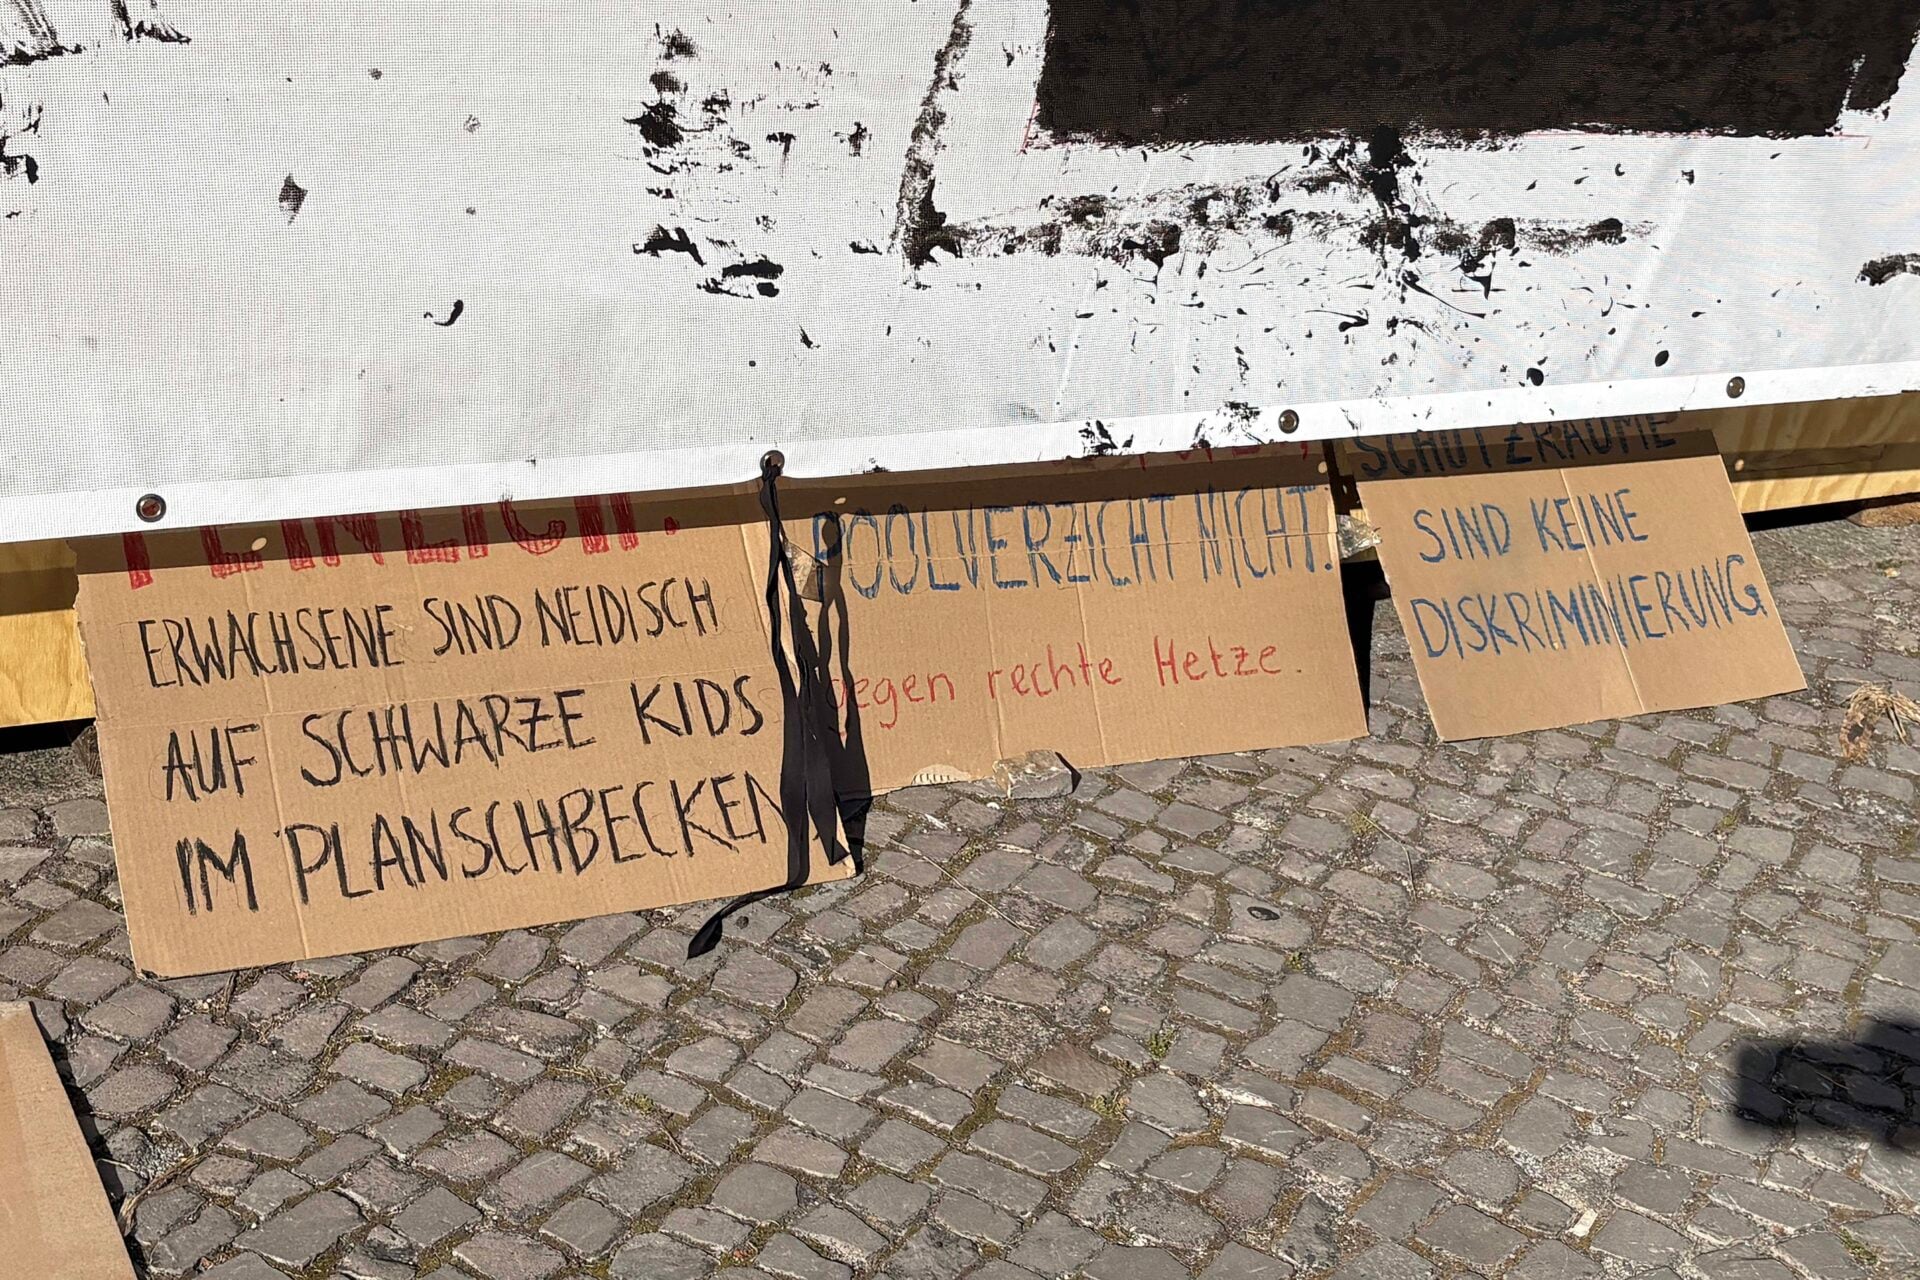 PEINLICH!
ERWACHSENE SIND NEIDISCH
AUF SCHWARZE KIDS
IM PLANSCHBECKEN
POOLVERZICHT NICHT.
gegen rechte Hetze.
SCHUTZRÄUME
SIND KEINE
DISKRIMINIERUNG